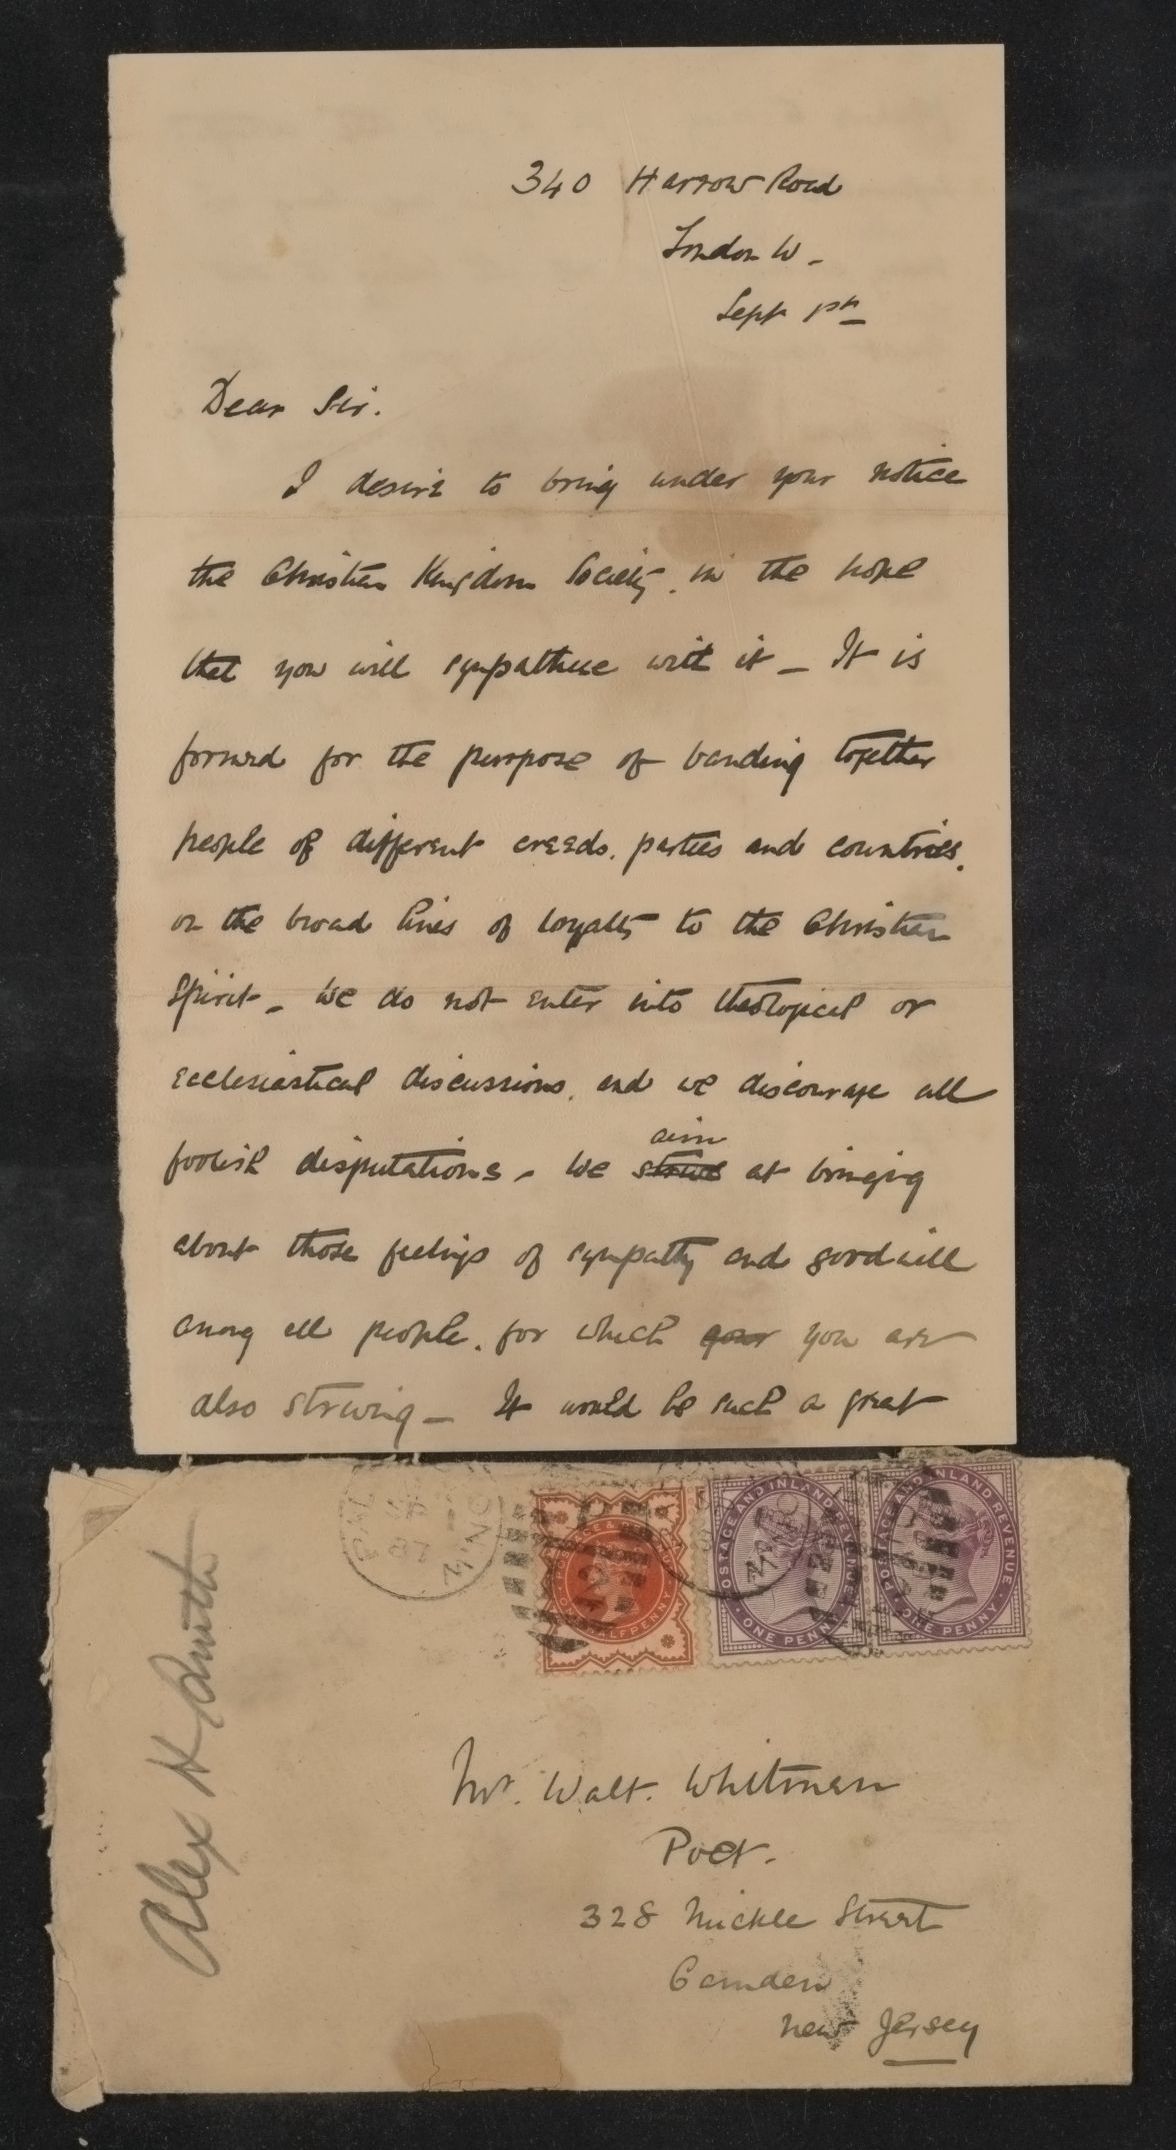 340 Harrow Road
London W -
Sept 1st
Dear Sir.
I desire to bring under your notice
the Christian Kingdom Society, in the hope
that you will sympathise with it - It is
formed for the purpose of banding together
people of different creeds, parties and countries,
on the broad lines of loyalty to the Christian
Spirit - We do not enter into theological or
ecclesiastical discussions, and we discourage all
aim
foolish disputations - We strive at bringing
about those feelings of sympathy and goodwill
among all people, for which your you are
also striving - It would be such a great
POSTAGE & REVENUE
HALFPENNY
POSTAGE AND INLAND REVENUE
ONE PENNY
POSTAGE AND INLAND REVENUE
ONE PENNY
Alex H Smith
Mr. Walt. Whitman
Poet.
328 Mickle Street
Camden
New Jersey